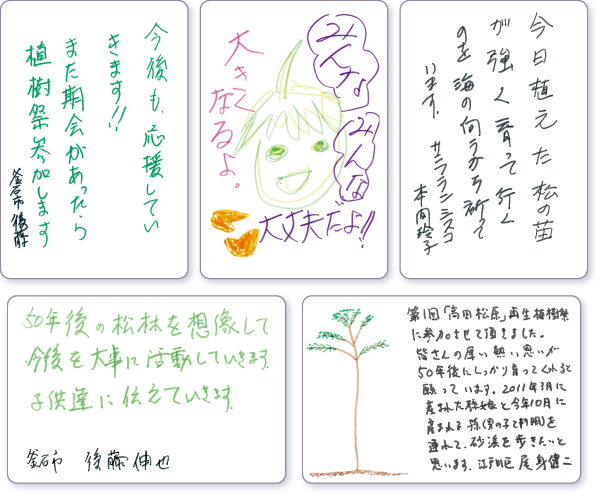 今後も、応援してい
きます!!
また期会があったら
植樹祭参加します
釜石市 後藤
みんな
みんな
大丈夫だよ!!
大きく
なるよ。
今日植えた松の苗
が強く育って行く
のを海の向うから祈って
います。
サンフランシスコ
本間玲子
50年後の松林を想像して
今後を大事に活動していきます。
子供達に伝えていきます。
釜石市 後藤伸也
第1回「高田松原」再生植樹祭
に参加させて頂きました。
皆さんの厚い熱い思いが
50年後にしっかり育ってくれると
願っています。2011年3月に
産まれた孫娘と今年10月に
産まれる孫(男の子と判明)を
連れて、砂浜を歩きたいと
思います。江戸川区 尾身健二